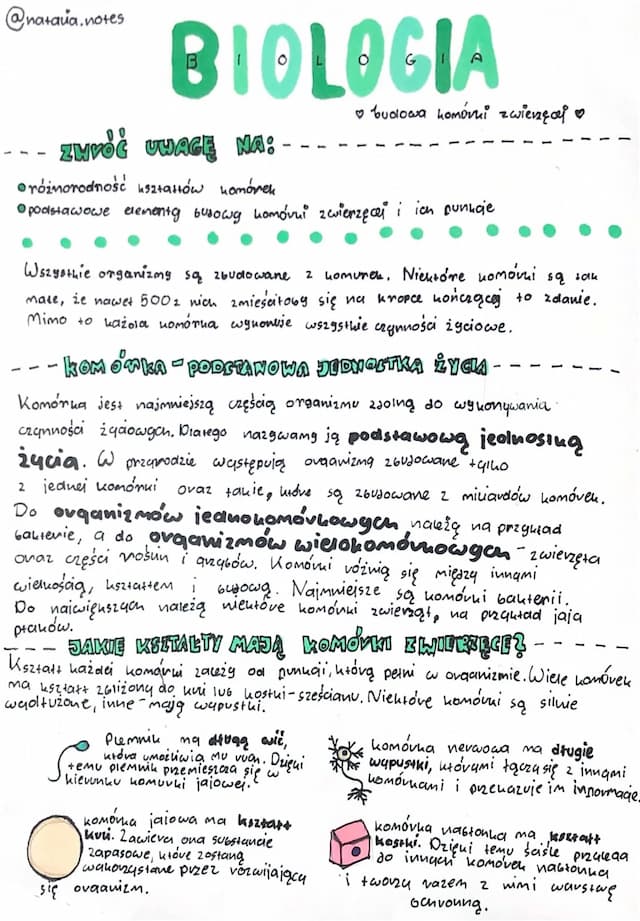 @natalia.notes
BIOLOGIA
BIOLOGIA
♡ budowa komórki zwierzęcej ♡
ZWRÓĆ UWAGĘ NA:
różnorodność kształtów komórek
podstawowe elementy budowy komórki zwierzęcej i ich funkcje
Wszystkie organizmy są zbudowane z komórek. Niektóre komórki są tak
małe, że nawet 500 z nich zmieściłoby się na kropce kończącej to zdanie.
Mimo to każda komórka wykonuje wszystkie czynności życiowe.
KOMÓRKA - PODSTAWOWA JEDNOSTKA ŻYCIA
Komórka jest najmniejszą częścią organizmu zdolną do wykonywania
czynności życiowych. Dlatego nazywamy ją podstawową jednostką
życia. W przyrodzie występują organizmy zbudowane tylko
z jednej komórki oraz takie, które są zbudowane z miliardów komórek.
Do organizmów jednokomórkowych należą na przykład
bakterie, a do organizmów wielokomórkowych - zwierzęta
oraz części roślin i grzybów. Komórki różnią się między innymi
wielkością, kształtem i budową. Najmniejsze są komórki bakterii.
Do największych należą niektóre komórki zwierząt, na przykład jaja
ptaków.
JAKIE KSZTAŁTY MAJĄ KOMÓRKI ZWIERZĘCE?
Kształt każdej komórki zależy od funkcji, którą pełni w organizmie. Wiele komórek
ma kształt zbliżony do kuli lub kostki-sześcianu. Niektóre komórki są silnie
wydłużone, inne - mają wypustki.
Plemnik ma długą wić,
która umożliwia mu ruch. Dzięki
temu plemnik przemieszcza się w
kierunku komórki jajowej.
komórka nerwowa ma długie
wypustki, którymi łączy się z innymi
komórkami i przekazuje im informacje.
komórka jajowa ma kształt
kuli. Zawiera ona substancje
zapasowe, które zostaną
wykorzystane przez rozwijający
się organizm.
komórka nabłonka ma kształt
kostki. Dzięki temu ściśle przylega
do innych komórek nabłonka
i tworzy razem z nimi warstwę
ochronną.